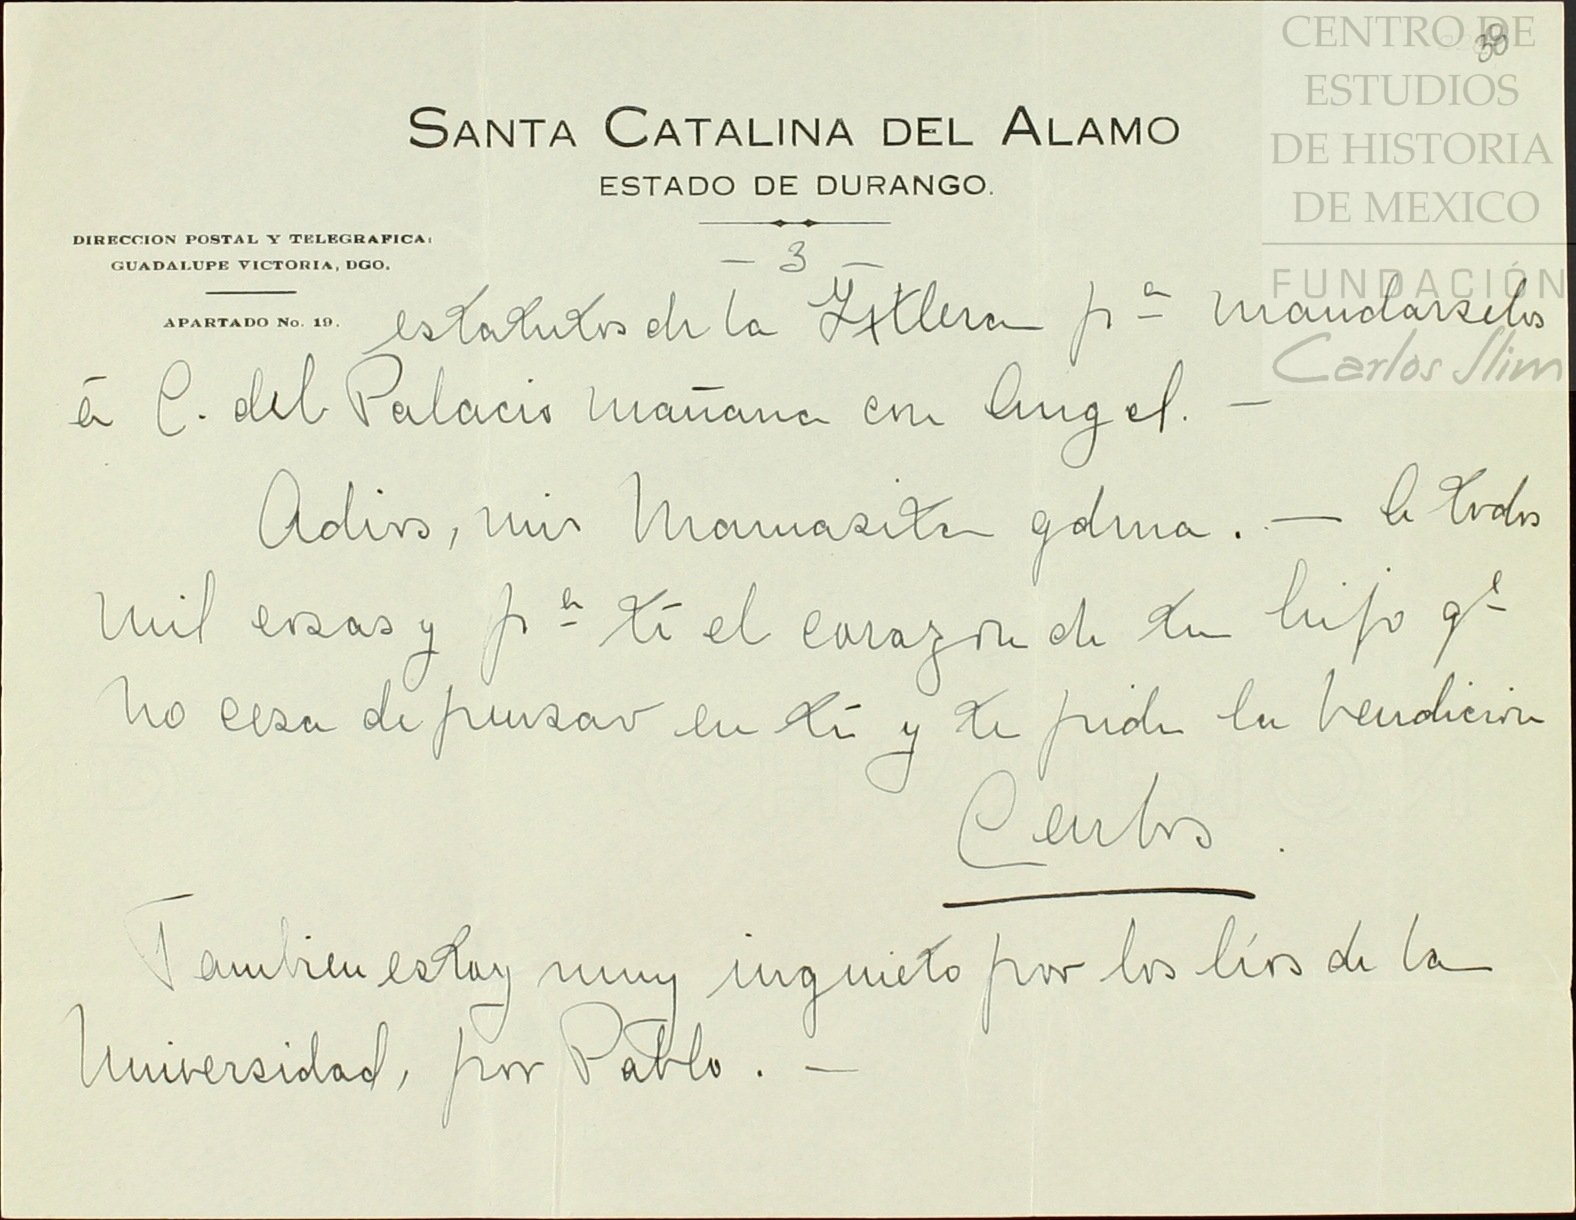 CENTRO DE
ESTUDIOS
DE HISTORIA
DE MEXICO
FUNDACIÓN
Carlos Slim
30
SANTA CATALINA DEL ALAMO
ESTADO DE DURANGO.
DIRECCION POSTAL Y TELEGRAFICA:
GUADALUPE VICTORIA, DGO.
APARTADO No. 19.
— 3 —
estatutos de la Ixtlera pª mandarselos
á C. del Palacio mañana con Angel. —
Adios, mi Mamasita qdma. — A todos
mil cosas y pª tí el corazón de tu hijo qᵉ
no cesa de pensar en tí y te pide la bendición
Carlos.
Tambien estoy muy inquieto por los líos de la
Universidad, por Pablo. —